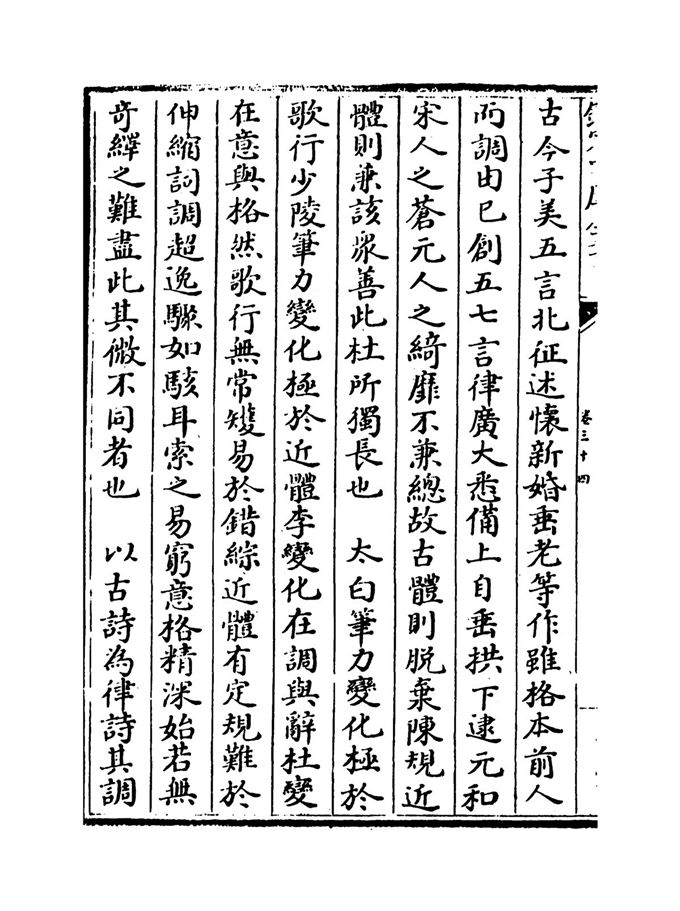 卷三十四
古今子美五言北征述懷新婚垂老等作雖格本前人
而調由已創五七言律廣大悉備上自垂拱下逮元和
宋人之蒼元人之綺靡不兼總故古體則脱棄陳規近
體則兼該衆善此杜所獨長也　太白筆力變化極於
歌行少陵筆力變化極於近體李變化在調與辭杜變
在意與格然歌行無常矱易於錯綜近體有定規難於
伸縮詞調超逸驟如駭耳索之易窮意格精深始若無
奇繹之難盡此其微不同者也　以古詩為律詩其調